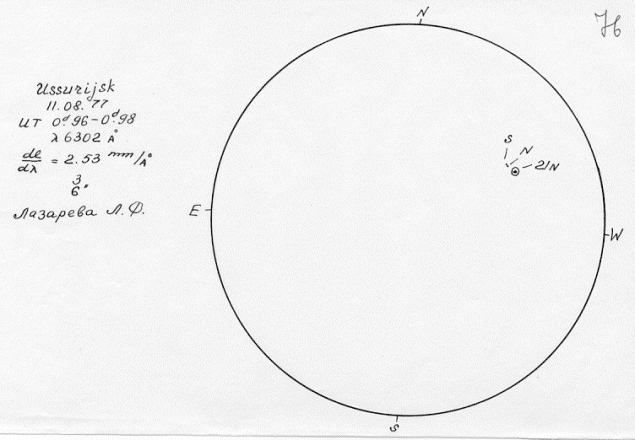 76
N
Ussurijsk
11.08.77
UT 0ᵈ.96-0ᵈ.98
λ 6302 Å
dl/dλ = 2.53 mm/Å
3
6"
Лазарева Л.Ф.
S
N
21N
E
W
S